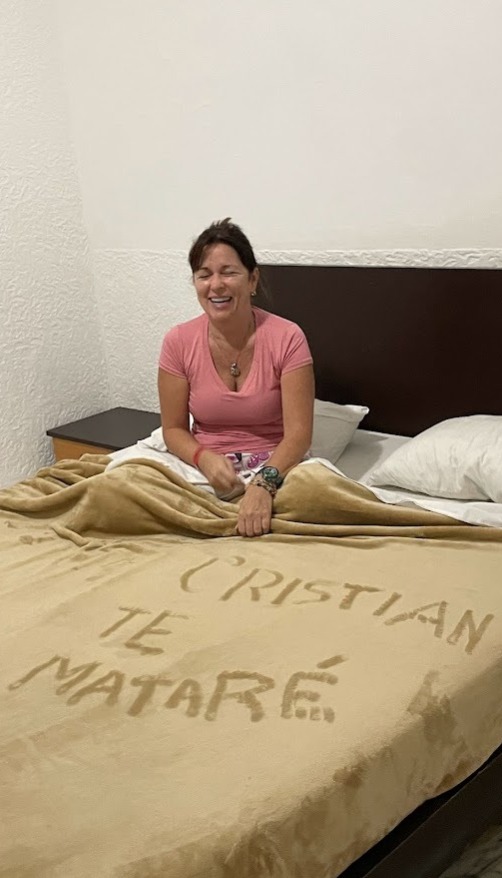 CRISTIAN
TE
MATARÉ